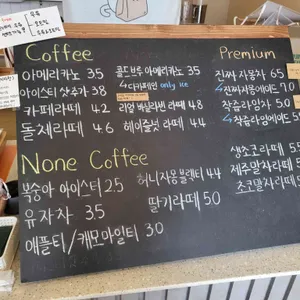 Coffee
아메리카노 3.5
아이스티 샷추가 3.8
카페라떼 4.2
돌체라떼 4.6
콜드브루 아메리카노 3.5
↳ 디카페인 only ice
리얼 바닐라빈 라떼 4.8
헤이즐넛 라떼 4.4
Premium
진짜 자몽차 6.5
↳ 진짜자몽에이드 7.0
착즙라임차 5.0
↳ 착즙라임에이드 5.5
None Coffee
복숭아 아이스티 2.5
유자차 3.5
애플티/캐모마일티 3.0
허니자몽블랙티 4.4
딸기라떼 5.0
생초코라떼 5.5
제주말차라떼
초코말차라떼